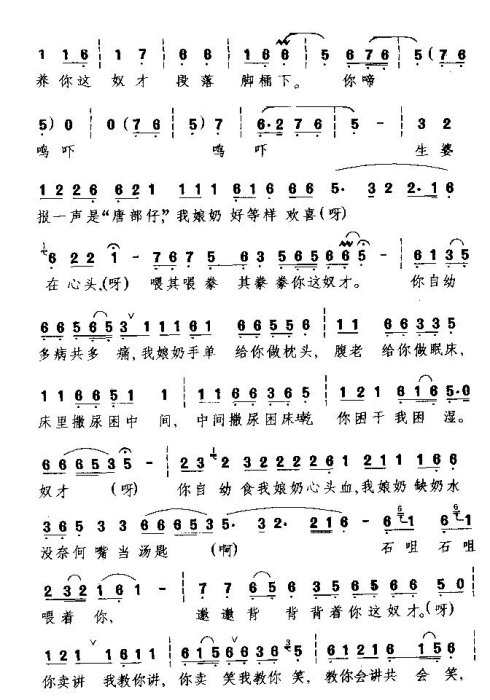 1 1 1 6 1 7 6 6 1 6 6 5 6 7 6 5 ( 7 6
养你这 奴才 段落 脚桶下。 你啼
5 ) 0 0 ( 7 6 5 ) 7 6 · 2 7 6 5 - 3 2
鸣吓 鸣吓 生婆
1 2 1 2 2 6 6 2 1 1 1 1 6 1 6 6 6 5 · 3 2 2 · 1 6
报一声是“唐部仔,”我娘奶 好等样 欢喜(呀)
6 2 2 1 - 7 6 7 5 6 3 5 6 5 6 6 5 - 6 1 3 5
在心头,(呀) 喂其喂拳 其拳拳你这奴才。 你自幼
6 6 5 6 5 3 1 1 1 6 1 6 6 3 5 1 1 6 6 3 3 5
多病共多 痛,我娘奶手单 给你做枕头, 腹老 给你做眠床,
1 1 6 6 5 1 1 1 1 1 6 6 3 6 5 1 6 2 1 6 5 · 0
床里撒尿困中 间, 中间撒尿困床乾 你困干我困 湿。
6 6 6 5 3 5 - 2 3 2 2 3 2 2 2 2 6 1 2 1 1 1 6 6 1
奴才 (呀) 你自幼 食我娘奶心头血,我娘奶 缺奶水
3 6 5 3 3 6 6 6 5 3 5 · 3 2 · 2 1 6 - 6 1 6 1
没奈何嘴当汤匙 (啊) 石咀 石咀
2 3 2 1 6 1 - 7 7 6 5 6 3 5 6 5 6 6 5 0
喂着你, 邀邀背 背背着你这奴才。(呀)
1 2 1 1 6 1 2 1 6 1 5 6 6 6 5 6 3 5 6 1 2 1 6 6 5 6
你卖讲 我教你讲, 你卖 笑我教你笑, 教你会讲共 会笑。